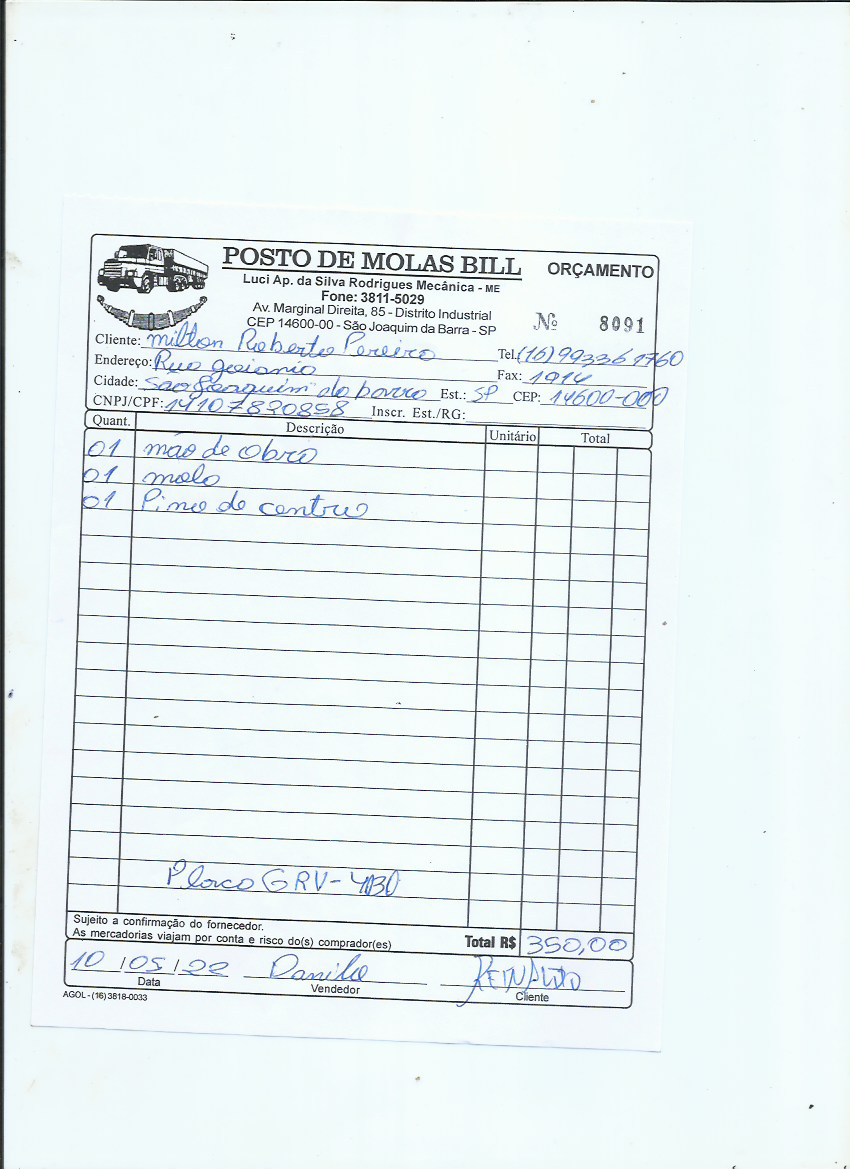 POSTO DE MOLAS BILL
ORÇAMENTO
Luci Ap. da Silva Rodrigues Mecânica - ME
Fone: 3811-5029
Av. Marginal Direita, 85 - Distrito Industrial
CEP 14600-00 - São Joaquim da Barra - SP
Nº 8091
Cliente: Milton Roberto Pereira Tel. (16) 99336 1760
Endereço: Rua goiania Fax: 1914
Cidade: São Joaquim da barra Est.: SP CEP: 14600-000
CNPJ/CPF: 14107820858 Inscr. Est./RG:
Quant. Descrição Unitário Total
01 mão de obra
01 mola
01 Pino de centro
Placa GRV-4130
Sujeito a confirmação do fornecedor.
As mercadorias viajam por conta e risco do(s) comprador(es) Total R$ 350,00
10 / 05 / 22 Danilo REINALDO
Data Vendedor Cliente
AGOL - (16) 3818-0033